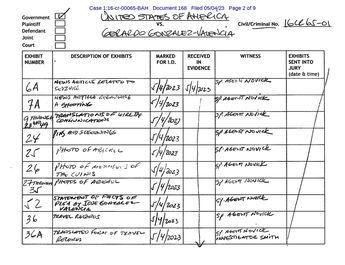 Case 1:16-cr-00065-BAH Document 168 Filed 05/04/23 Page 2 of 9
Government
Plaintiff
Defendant
Joint
Court
UNITED STATES OF AMERICA
VS.
GERARDO GONZALEZ-VALENCIA
Civil/Criminal No. 16CR65-01
EXHIBIT NUMBER
DESCRIPTION OF EXHIBITS
MARKED FOR I.D.
RECEIVED IN EVIDENCE
WITNESS
EXHIBITS SENT INTO JURY (date & time)
6A NEWS ARTICLE RELATED TO SEIZURE 5/4/2023 5/4/2023 SP AGENT NOVICK
7A NEWS ARTICLE A SHOOTING 5/4/2023 SP AGENT NOVICK
9 THROUGH TRANSLATIONS OF COMMUNICATIONS 5/4/2023 SP AGENT NOVICK
24 PINS AND 5/4/2023 SP AGENT NOVICK
25 PHOTO OF 5/4/2023 SP AGENT NOVICK
26 PHOTO OF OF 5/4/2023 SP AGENT NOVICK
27 THROUGH 35 PHOTOS OF 5/4/2023 SP AGENT NOVICK
52 STATEMENT OF FACTS OF PLEA BY JOSE GONZALEZ VALENCIA 5/4/2023 SP AGENT NOVICK
36 TRAVEL RECORDS 5/4/2023 SP AGENT NOVICK
36A TRANSLATED FORM OF TRAVEL RECORDS 5/4/2023 SP AGENT NOVICK
INVESTIGATOR SMITH